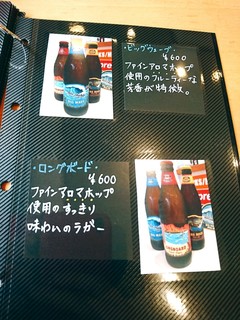 ・ビッグウェーブ・
¥600
ファインアロマホップ
使用のフルーティーな
芳香が特徴。
・ロングボード・
¥600
ファインアロマホップ
使用のすっきり
味わいのラガー